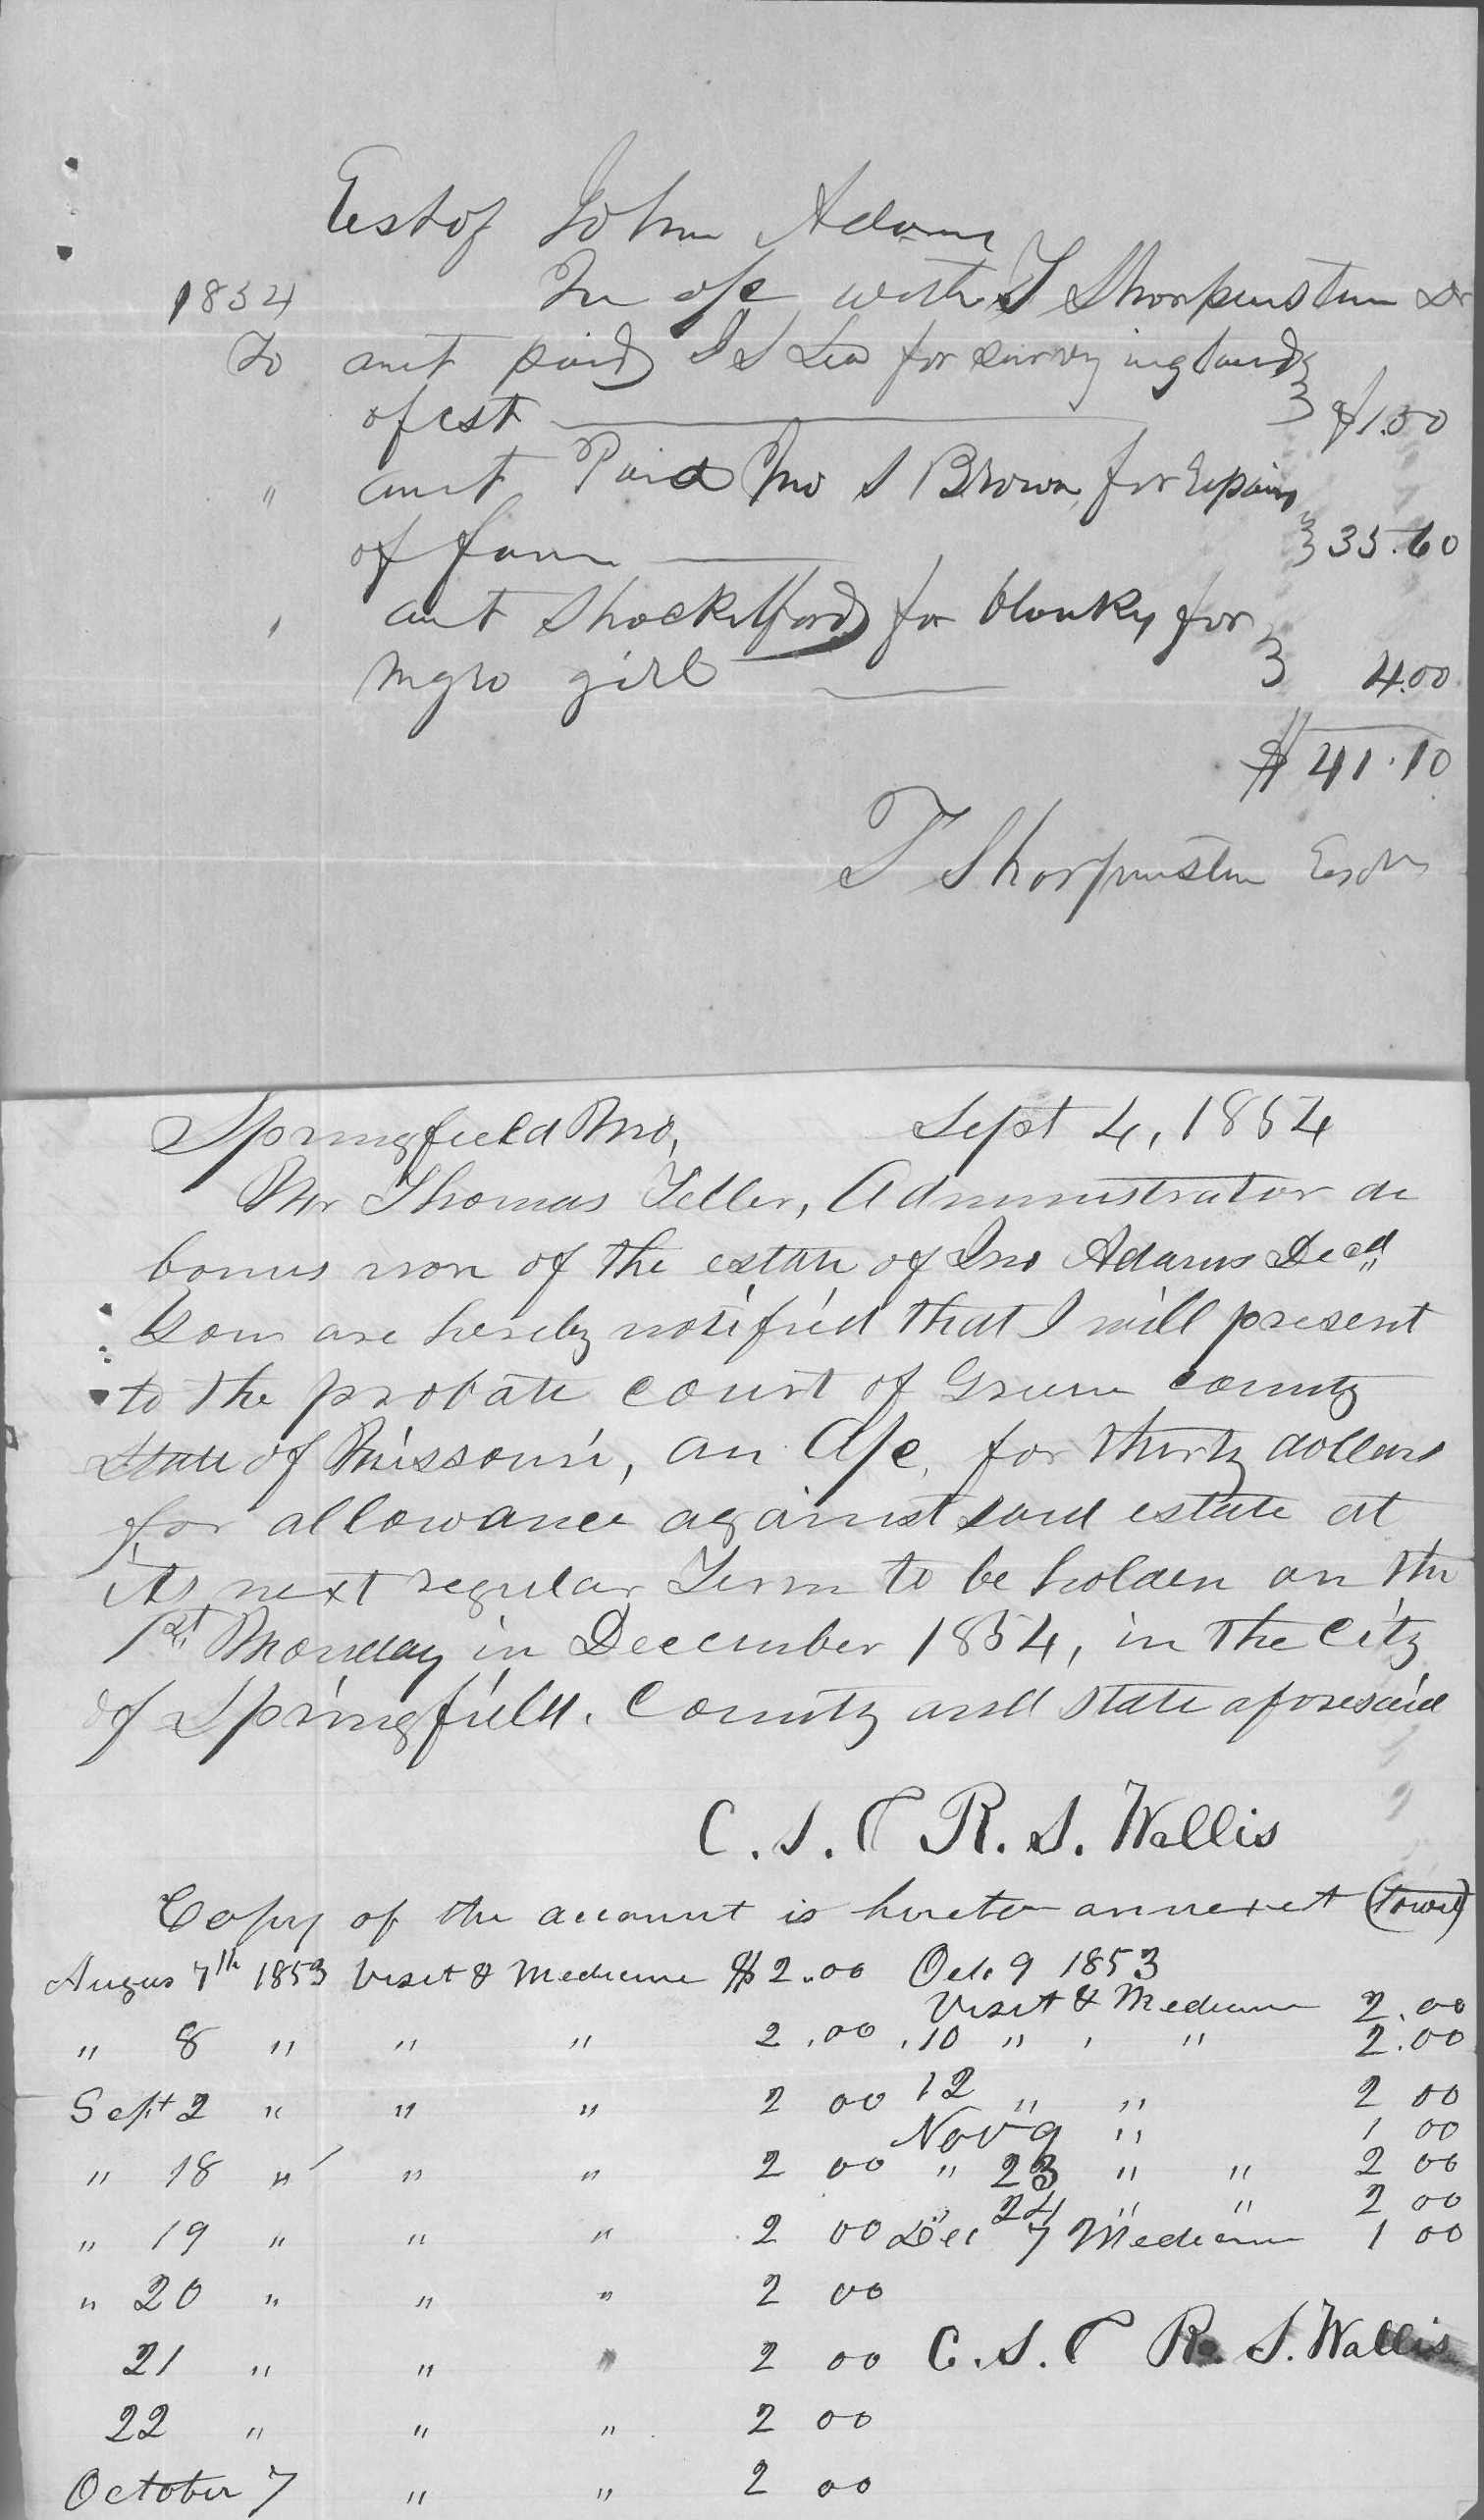 Est of John Adams
1854 In a/c with T Shorpenstein Dr
To amt paid J S Lea for surveying land
of est $1.50
" amt Paid Jno S Brown for Repairs
of farm 35.60
" amt Shockelford for blonky for
negro girl 4.00
$41.10
T Shorpenstein
Springfield Mo, Sept 4, 1854
Mr Thomas Teller, Administrator de
bonus non of the estate of Jno Adams Decd
You are hereby notified that I will present
to the probate court of Green county
State of Missouri, an A/c, for thirty dollars
for allowance against said estate at
its next regular Term to be holden on the
1st Monday in December 1854, in the City
of Springfield. County and State aforesaid
C. S. & R. S. Wallis
Copy of the account is hereto annexet (towit)
Augus 7th 1853 Visit & Medicine $2.00 Oct. 9 1853
Visit & Medicine 2.00
" 8 " " " 2.00 . 10 " " " 2.00
Sept 2 " " " 2 00 12 " " 2 00
Nov 9 " 1 00
" 18 " " " 2 00 " 23 " " 2 00
" 24 " " 2 00
" 19 " " " 2 00 Dec 7 Medicine 1 00
" 20 " " " 2 00
21 " " " 2 00 C. S. & R. S. Wallis
22 " " " 2 00
October 7 " " 2 00